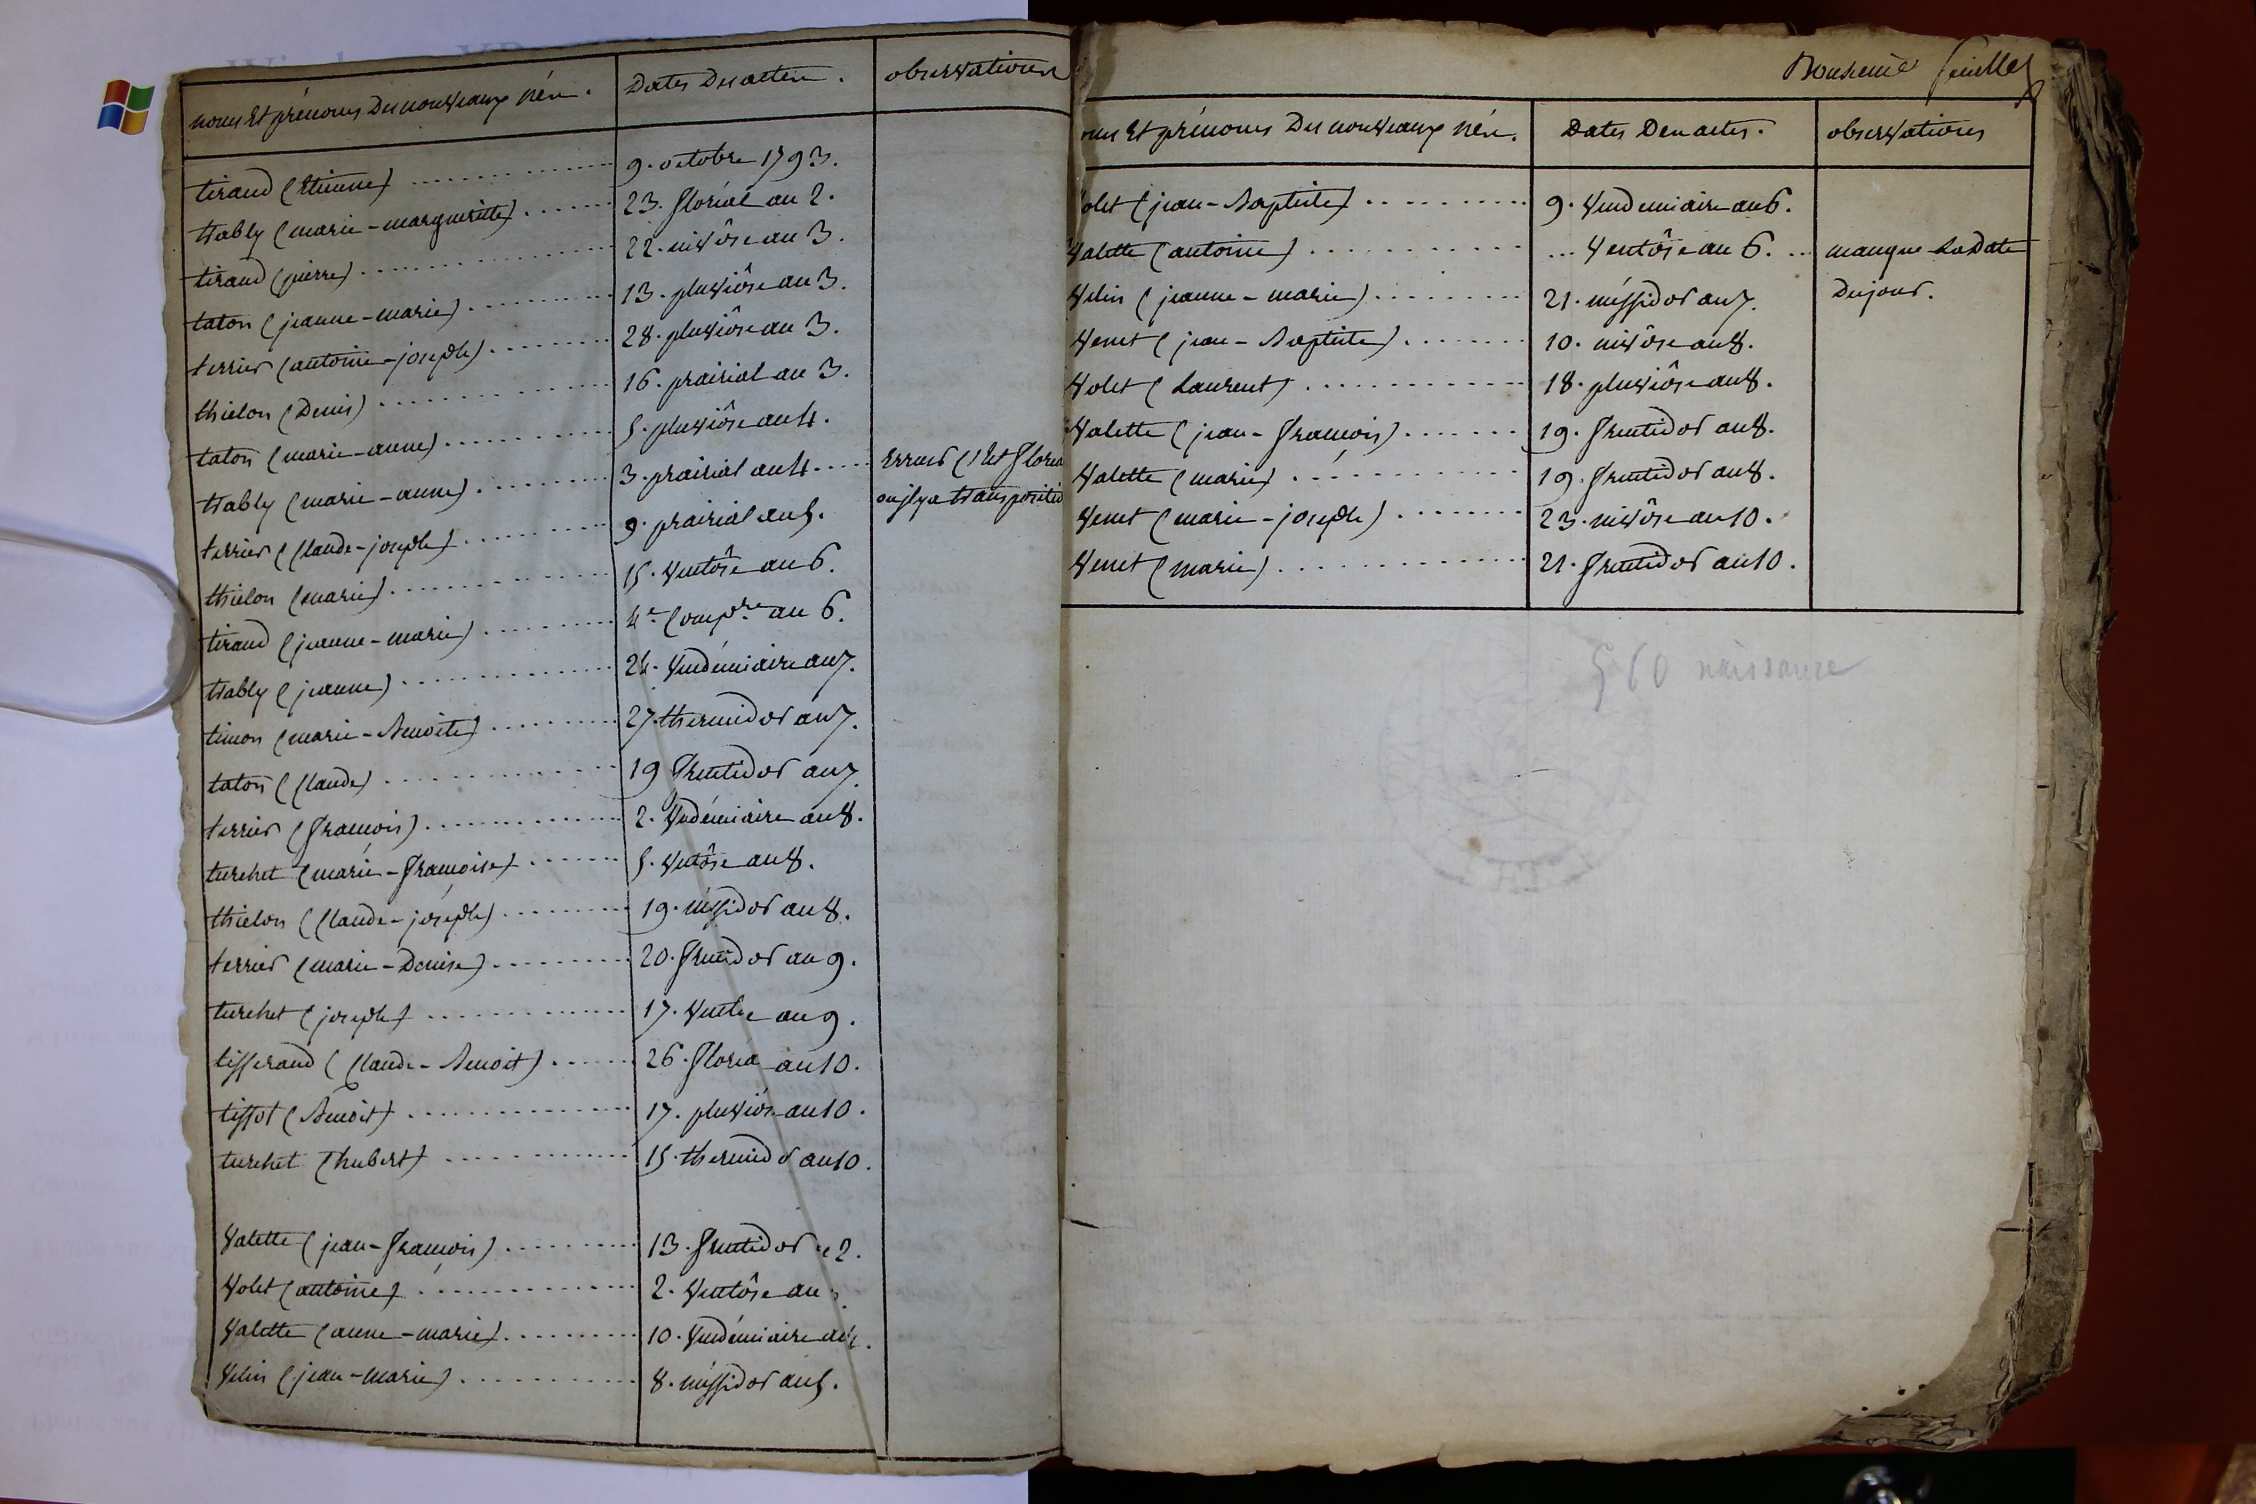 noms Et prénoms Des nouveaux nés.
Dates Des actes.
observations
tirand (Etienne) 9. octobre 1793.
trably (marie-margueritte) 23. floréal an 2.
tirand (pierre) 22. nivôse an 3.
taton (jeanne-marie) 13. pluviôse an 3.
terrier (antoine-joseph) 28. pluviôse an 3.
thielon (Denis) 16. prairial an 3.
taton (marie-anne) 5. pluviôse an 4.
trably (marie-anne) 3. prairial an 4. Erreur C'est floréa
ou il y a transpositio
terrier (Claude-joseph) 9. prairial an 5.
thielon (marie) 15. Ventôse an 6.
tirand (jeanne-marie) 4e Compre an 6.
trably (jeanne) 24. Vendémiaire an 7.
timon (marie-Benoite) 27. thermidor an 7.
taton (Claude) 19 fructidor an 7.
terrier (françois) 2. Vendémiaire an 8.
turchet (marie-françoise) 5. Ventôse an 8.
thielon (Claude-joséph) 19. méssidor an 8.
terrier (marie-Denise) 20. fructidor an 9.
turchet (joseph) 17. an 9.
tisserand (Claude-Benoit) 26. florea an 10.
tissot (Benoit) 17. pluviôse an 10.
turchet (hubert) 15. thermidor an 10.
Valette (jean-françois) 13. fructidor 2.
Volet (antoine) 2. Ventôse an
Valette (anne-marie) 10. Vendémiaire an 4.
Velin (jean-marie) 8. méssidor an 5.
feuillet
oms Et prénoms Des nouveaux nés.
Dates Des actes.
observations
Volet (jean-Baptiste) 9. Vendemiaire an 6.
Valette (antoine) ... Ventôse an 6. ... manque La Date
Du jour.
Velin (jeanne-marie) 21. méssidor an 7.
Venet (jean-Baptiste) 10. nivôse an 8.
Volet (Laurent) 18. pluviôse an 8.
Valette (jean-françois) 19. fructidor an 8.
Valette (marie) 19. fructidor an 8.
Venet (marie-joseph) 23. nivôse an 10.
Venet (marie) 21. fructidor an 10.
560 naissance